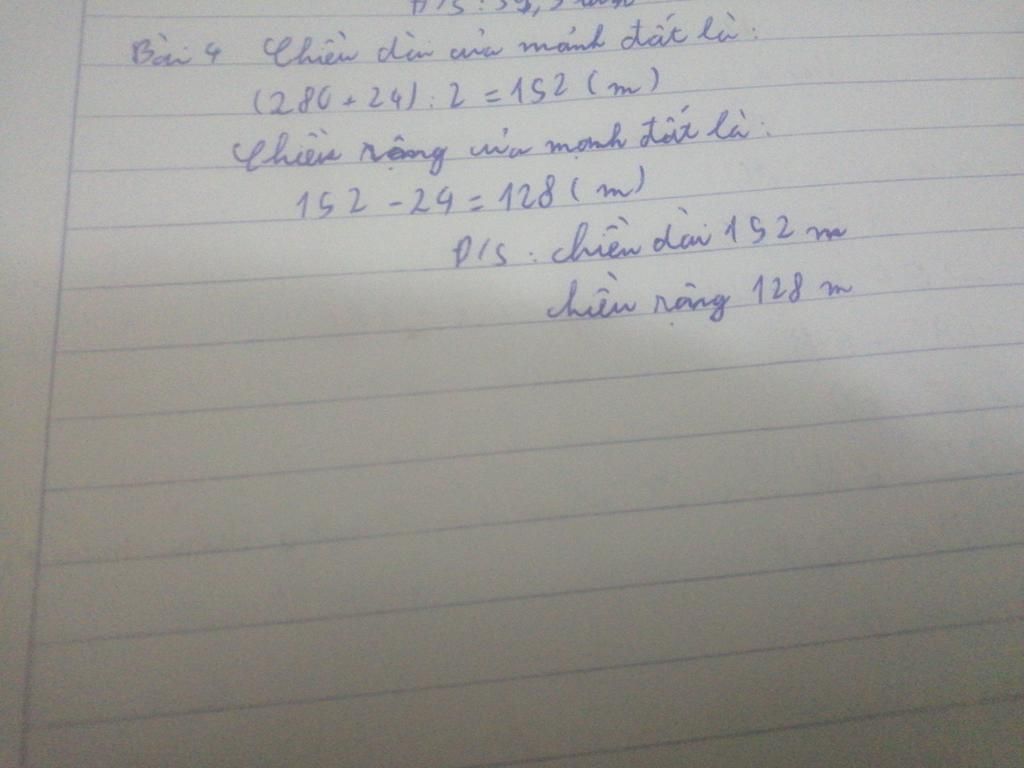 Đ/S: 3
Bài 4 Chiều dài của mảnh đất là:
(280 + 24) : 2 = 152 (m)
Chiều rộng của mảnh đất là:
152 - 24 = 128 (m)
Đ/S: chiều dài 152 m
chiều rộng 128 m